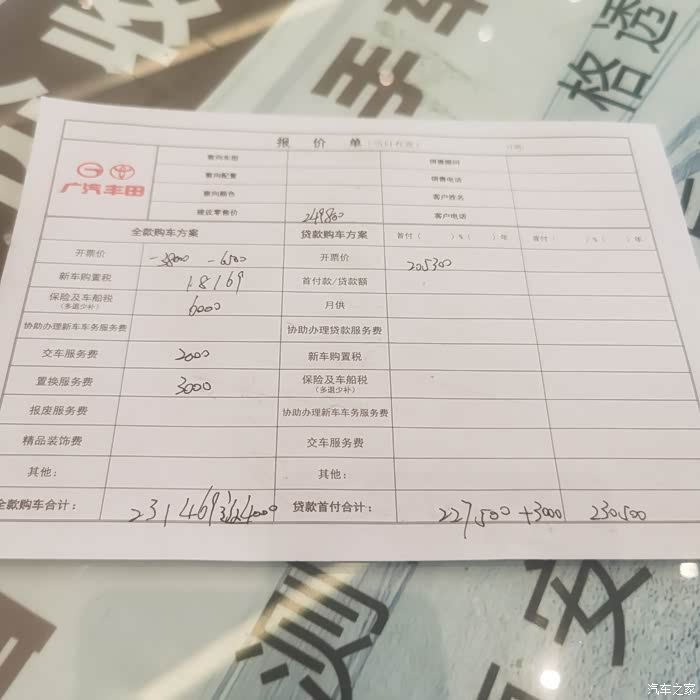 收
手车
格透
报 价 单
日期:
广汽丰田
意向车型
销售顾问
意向配置
销售电话
意向颜色
客户姓名
建议零售价 249800 客户电话
全款购车方案 贷款购车方案 首付 ( ) % ( ) 年 首付 ( ) % ( ) 年
开票价 -38000 -6500 开票价 205300
新车购置税 18169 首付款/贷款额
保险及车船税 (多退少补) 6000 月供
协助办理新车车务服务费 协助办理贷款服务费
交车服务费 2000 新车购置税
置换服务费 3000 保险及车船税 (多退少补)
报废服务费 协助办理新车车务服务费
精品装饰费 交车服务费
其他: 其他:
全款购车合计: 231469 贷款首付合计: 227500 +3000 230500
测
安
汽车之家